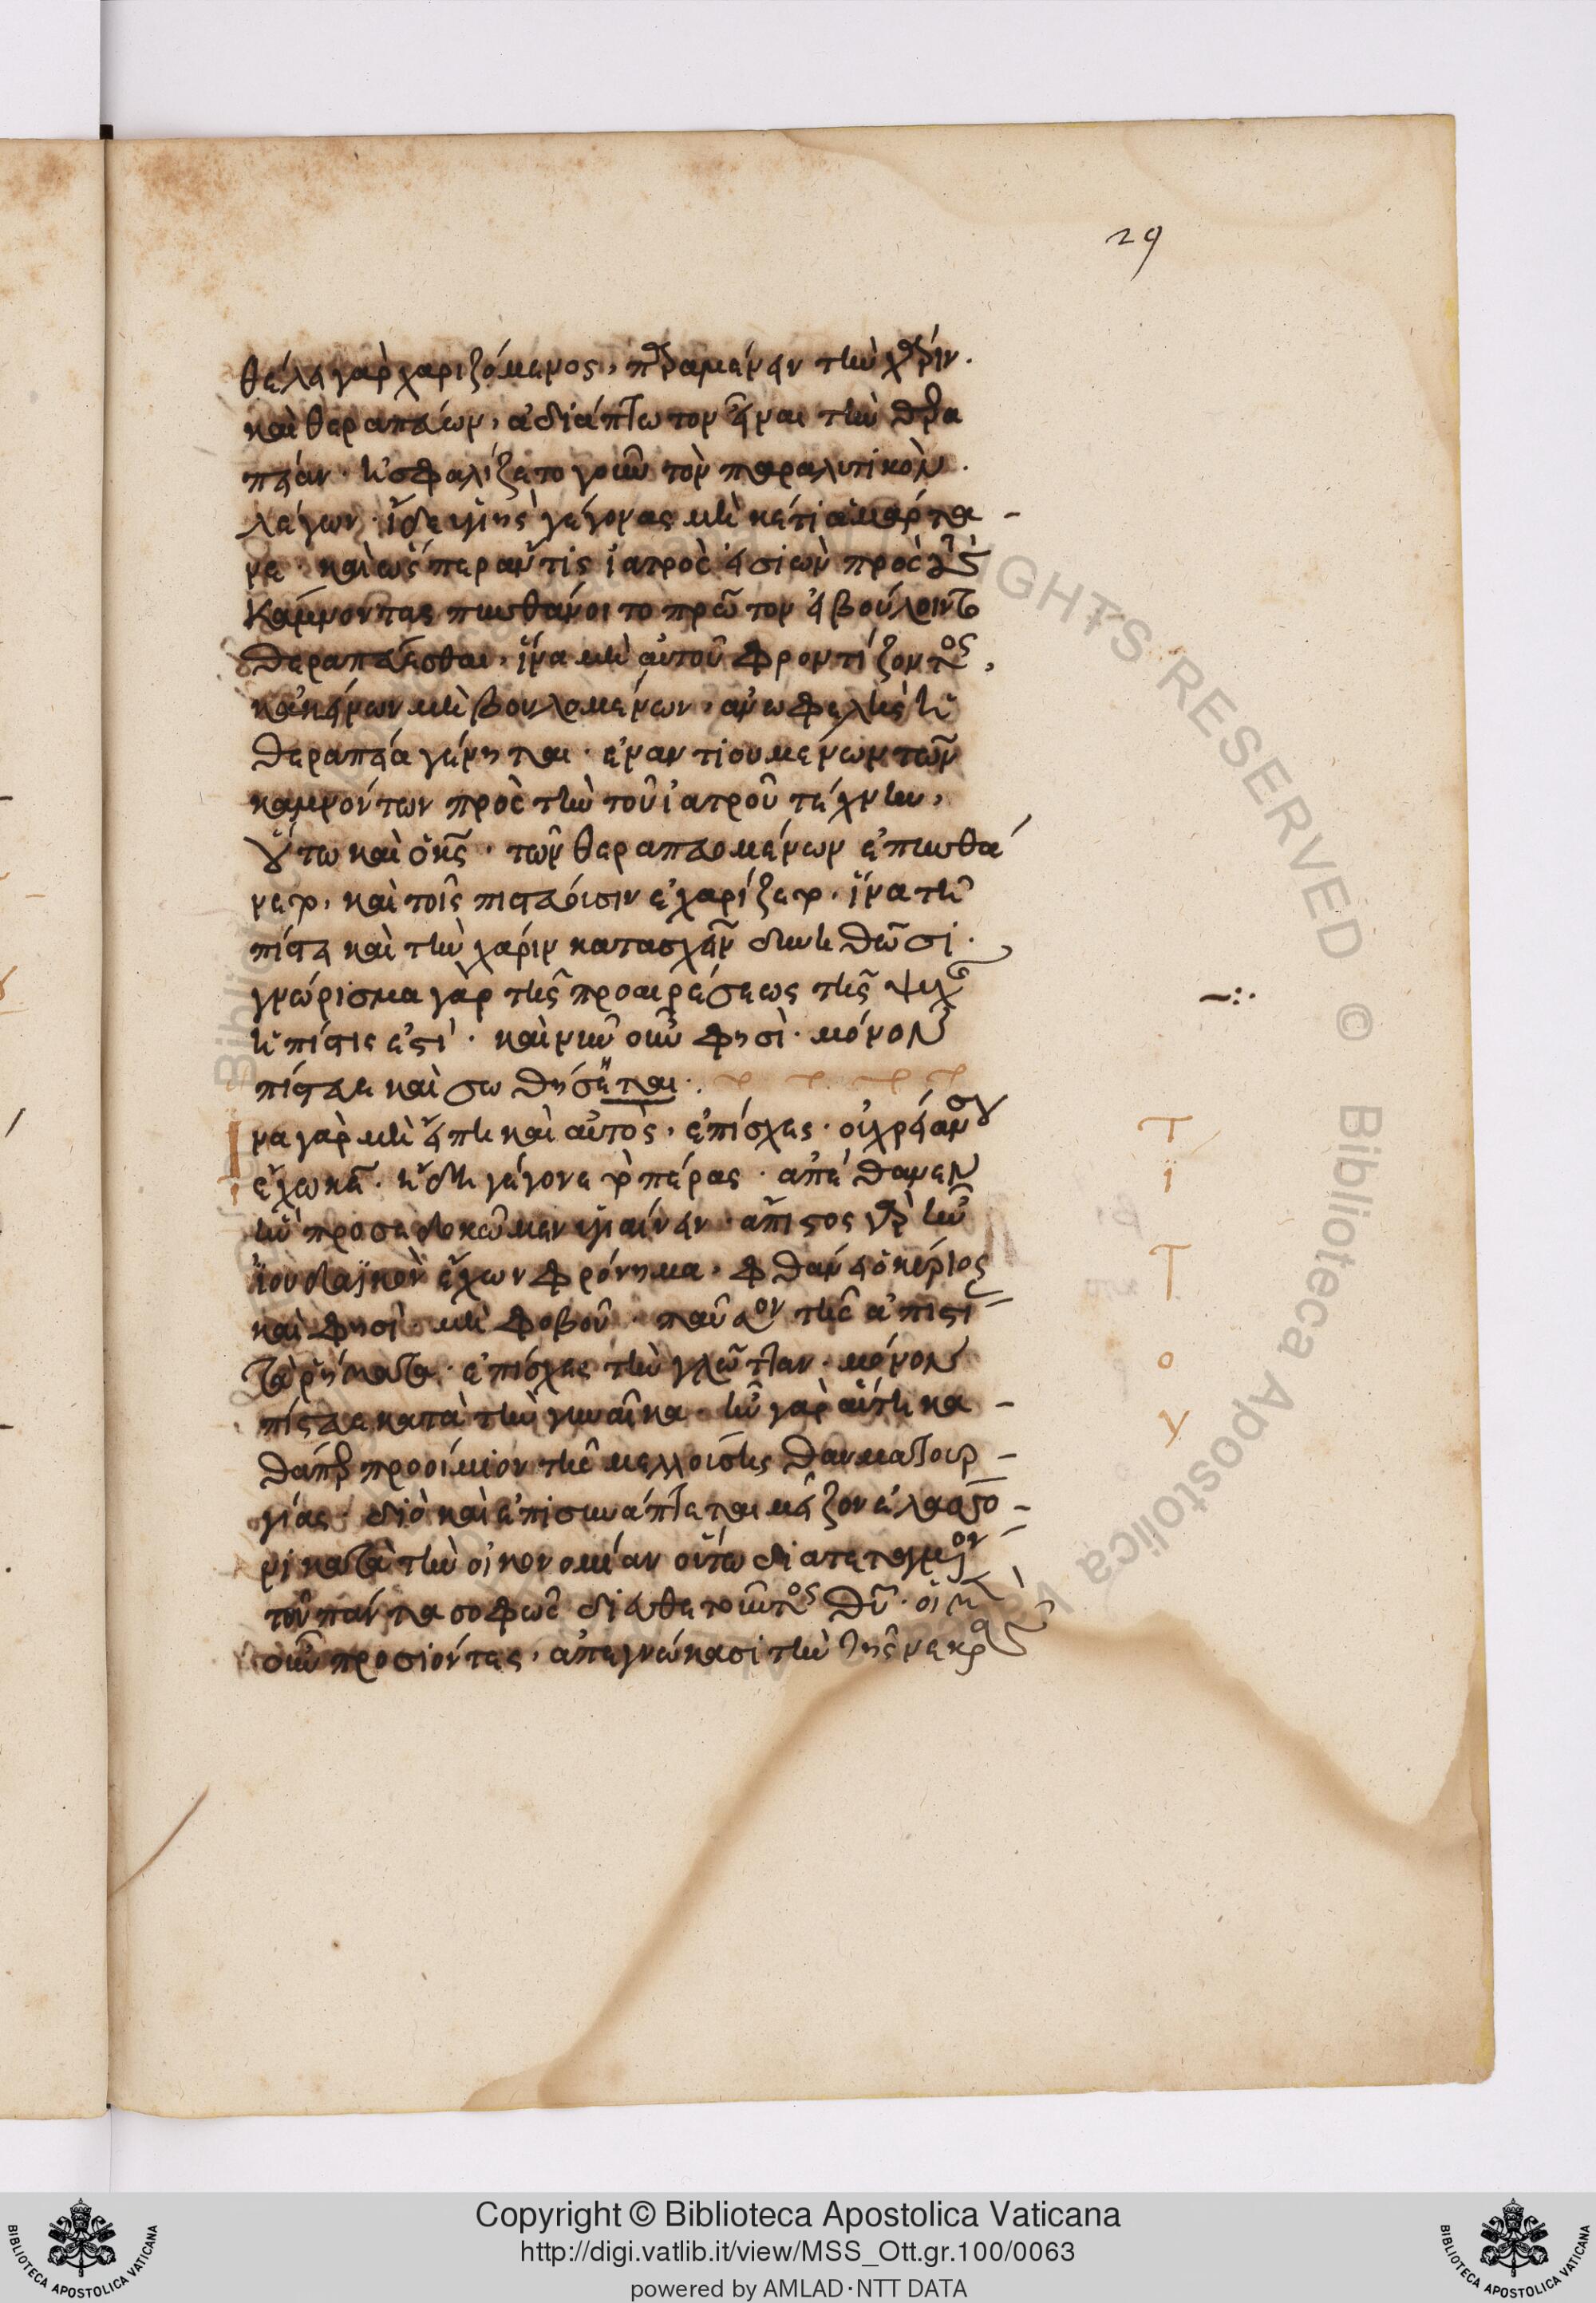 29
θέλει γὰρ χαριζόμενος, παραμένειν τὴν χάριν.
καὶ θεραπεύων, ἀδιάπτωτον εἶναι τὴν θερα
πείαν· ἠσφαλίζετο γοῦν τὸν παραλυτικὸν.
λέγων· ἴδε ὑγιὴς γέγονας μὴ κέτι ἁμάρτα -
νε· καὶ ὥσπερ ἄν τις ἰατρὸς εἰσιὼν πρὸς τοὺς
κάμνοντας πυνθάνοιτο πρῶτον εἰ βούλοιντο
θεραπεύεσθαι, ἵνα μὴ αὐτοῦ φροντίζοντος,
κἀκείνων μὴ βουλομένων, ἀνωφελὴς ἡ
θεραπεία γένηται· ἐναντιουμένων τῶν
καμνόντων πρὸς τὴν τοῦ ἰατροῦ τέχνην,
οὕτω καὶ ὁ κς· τῶν θεραπευομένων ἐπυνθά
νετο, καὶ τοῖς πιστεύουσιν ἐχαρίζετο, ἵνα τῇ
πίστει καὶ τὴν χάριν κατασχεῖν δυνηθῶσι.
γνώρισμα γὰρ τῆς προαιρέσεως τῆς ψυχῆς
ἡ πίστις ἐστί· καὶ νῦν οὖν φησὶ· μόνον
πίστευε καὶ σωθήσεται.
να γὰρ μὴ εἴπῃ καὶ αὐτὸς, ἐπίσχες· οὐ χρείαν σου
ἔχω κε· ἤδη γέγονε τὸ πέρας· ἀπέθανεν
ἣν προσεδοκῶμεν ὑγιαίνειν· ἄπιστος γὰρ ἦν
ἰουδαϊκὸν ἔχων φρόνημα, φθάνει ὁ κύριος
καὶ φησὶ· μὴ φοβοῦ· παῦσον τῆς ἀπιστίας
τὰ ῥήματα· ἐπίσχες τὴν γλῶτταν· μόνον
πίστευε κατὰ τὴν γυναῖκα· ἦν γὰρ αὕτη κα -
θάπερ προοίμιον τῆς μελλούσης θαυματουρ -
γίας· διὸ καὶ ἐπισυνάπτεται μεῖζον ἐλάττο -
νι κατὰ τὴν οἰκονομίαν οὕτω διατεταγμένον
τοῦ πάντα σοφῶς διευθετοῦντος θυ· οἱ μὲν
οὖν προσιόντες, ἀπεγνώκασι τὴν τῆς νεκρᾶς
~:·
Τ
ϊ
Τ
ο
υ
Copyright © Biblioteca Apostolica Vaticana
http://digi.vatlib.it/view/MSS_Ott.gr.100/0063
powered by AMLAD·NTT DATA
BIBLIOTECA APOSTOLICA VATICANA
BIBLIOTECA APOSTOLICA VATICANA